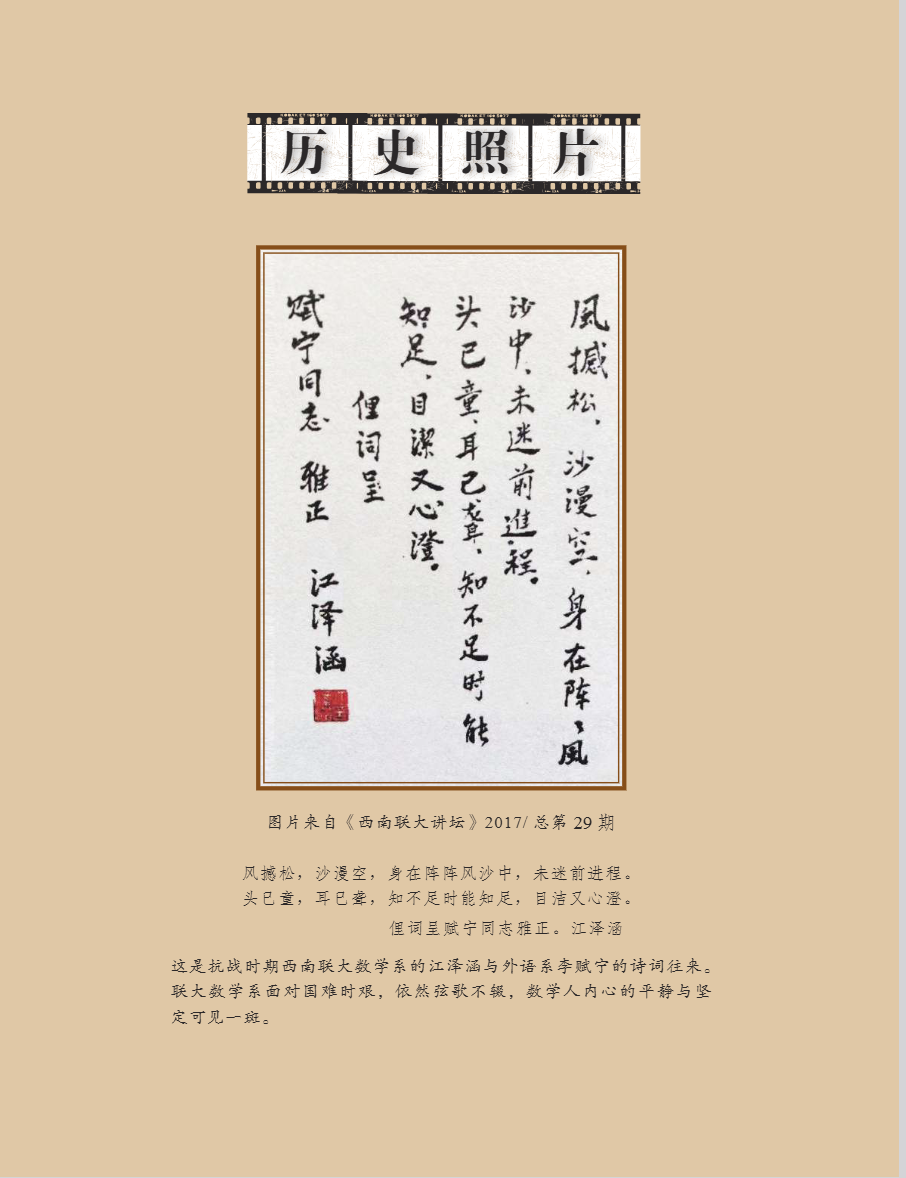 历史照片
風撼松，沙漫空，身在阵々風
沙中，未迷前進程。
头已童，耳已聋，知不足时能
知足，目潔又心澄。
俚词呈
赋宁同志 雅正 江泽涵
图片来自《西南联大讲坛》2017/ 总第 29 期
风撼松，沙漫空，身在阵阵风沙中，未迷前进程。
头已童，耳已聋，知不足时能知足，目洁又心澄。
俚词呈赋宁同志雅正。江泽涵
这是抗战时期西南联大数学系的江泽涵与外语系李赋宁的诗词往来。
联大数学系面对国难时艰，依然弦歌不辍，数学人内心的平静与坚
定可见一斑。